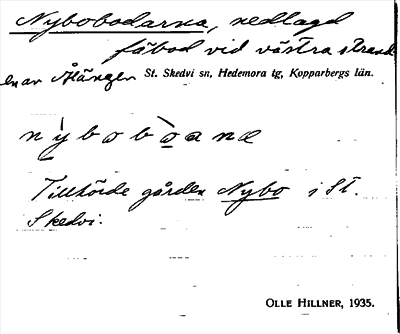 Nybobodarna, nedlagd
fäbod vid västra strand
en av Åtängen St. Skedvi sn, Hedemora tg, Kopparbergs län.
nyboboana
Tillhörde gården Nybo i St.
Skedvi.
OLLE HILLNER, 1935.